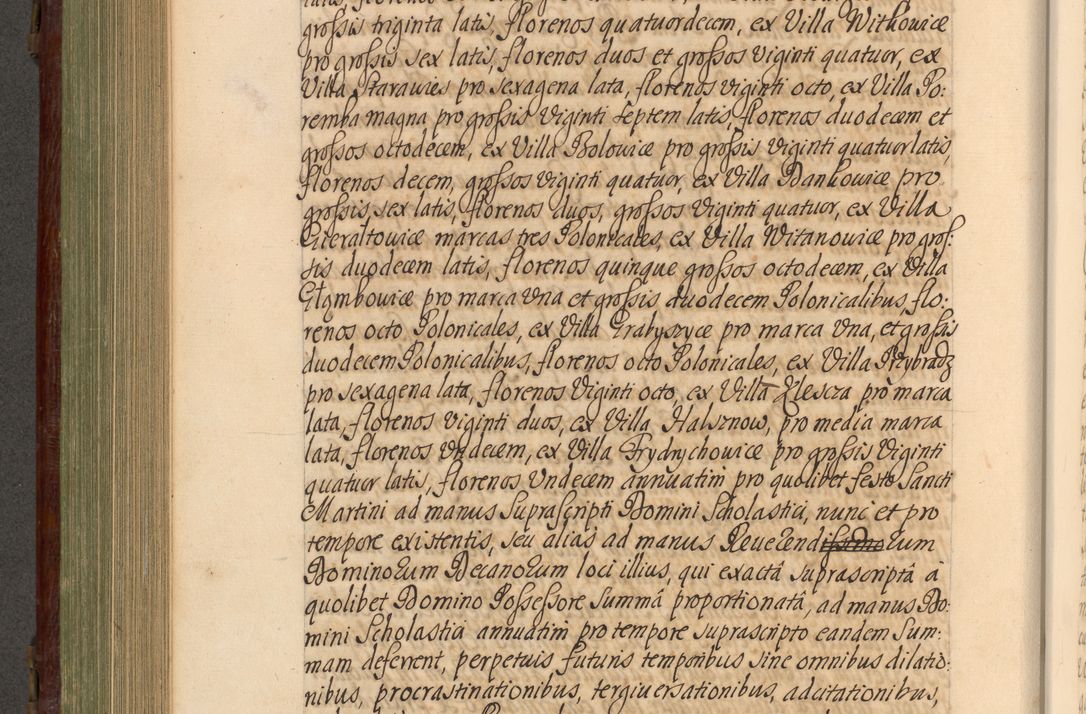 grossis triginta latis, florenos quatuordecem, ex Villa Witkowice
pro grossis sex latis, florenos duos et grossos Viginti quatuor, ex
Villa Starawies pro sexagena lata, florenos viginti octo, ex Villa Po:
remba magna pro grossis Viginti septem latis, florenos duodecem et
grossos octodecem, ex Villa Bolowice pro grossis viginti quatuor latis,
florenos decem, grossos viginti quatuor, ex Villa Dankowice pro
grossis, sex latis, florenos duos, grossos Viginti quatuor, ex Villa
Gieraltowice marcas tres Polonicales, ex Villa Witanowice pro gros:
sis duodecem latis, florenos quinque grossos octodecem, ex Villa
Glymbowice pro marca Una et grossis duodecem Polonicalibus, flo:
renos octo Polonicales, ex Villa Grabyszyce pro marca Una, et grossis
duodecem Polonicalibus, florenos octo Polonicales, ex Villa Przybradz
pro sexagena lata, florenos Viginti octo, ex Villa Zlescza pro marca
lata, florenos viginti duos, ex Villa Halsznow, pro media marca
lata, florenos Undecem, ex Villa Frydrychowice pro grossis Viginti
quatuor latis, florenos Undecem annuatim pro quolibet festo Sancti
Martini ad manus Suprascripti Domini Scholastici, nunc et pro
tempore existentis, seu alias ad manus Reverendissimorum
Dominorum Decanorum loci illius, qui exactâ suprascriptâ â
quolibet Domino Possessore Summâ proportionatâ, ad manus Do:
mini Scholastici annuatim pro tempore suprascripto eandem Sum:
mam deferent, perpetuis futuris temporibus sine omnibus dilatio:
nibus, procrastinationibus, tergiversationibus, adcitationibus,